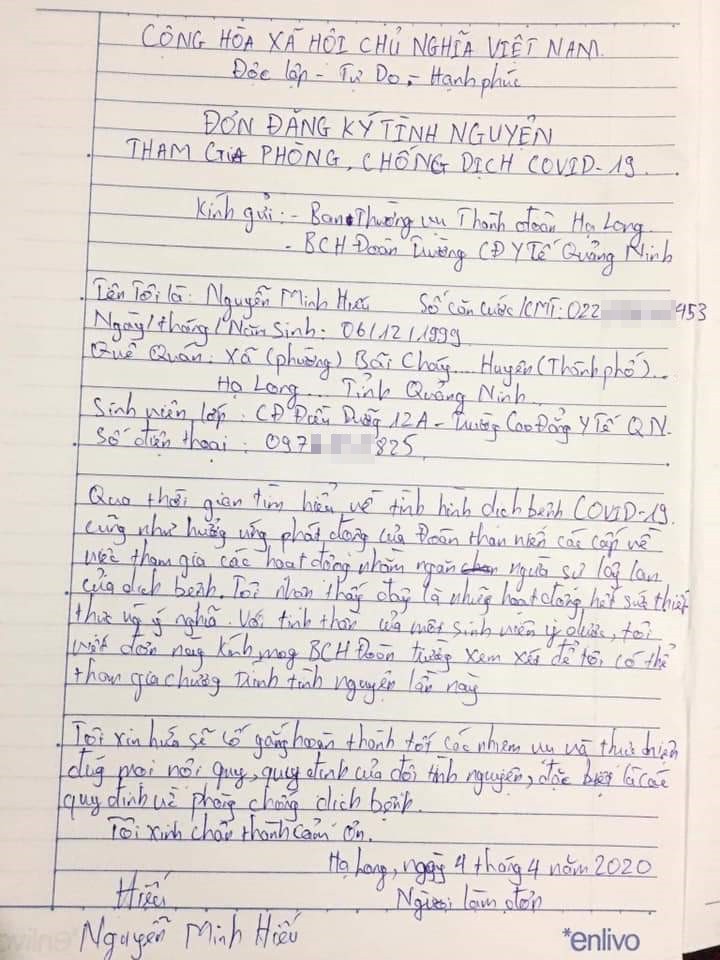 CÔNG HÒA XÃ HÔI CHỦ NGHĨA VIỆT NAM.
Độc lập - Tự Do - Hạnh phúc
ĐƠN ĐĂNG KÝ TÌNH NGUYỆN
THAM GIA PHÒNG, CHỐNG DỊCH COVID-19.
Kính gửi: - Ban Thường vụ Thành đoàn Hạ Long.
- BCH Đoàn Trường CĐ Y Tế Quảng Ninh
Tên Tôi là: Nguyễn Minh Hiếu Số căn cước/CMT: 022 953
Ngày/tháng/Năm Sinh: 06/12/1999
Quê Quán: Xã (phường) Bãi Cháy... Huyện (Thành phố)...
Hạ Long... Tỉnh Quảng Ninh.
Sinh viên lớp: CĐ Điều Dưỡng 12A - Trường Cao Đẳng Y Tế QN.
Số điện thoại: 097 825
Qua thời gian tìm hiểu về tình hình dịch bệnh COVID-19.
cũng như hưởng ứng phát động của Đoàn than niên các cấp về
việc tham gia các hoạt động nhằm ngăn ngừa sự lây lan
của dịch bệnh. Tôi nhận thấy đây là những hoạt động hết sức thiết
thực và ý nghĩa. Với tinh thần của một sinh viên y dược, tôi
viết đơn này kính mong BCH Đoàn trường xem xét để tôi có thể
tham gia chương trình tình nguyện lần này
Tôi xin hứa sẽ cố gắng hoàn thành tốt các nhiệm vụ và thực hiện
đúg mọi nội quy, quy định của đội tình nguyện, đặc biệt là các
quy định về phòng chống dịch bệnh.
Tôi xinh chân thành cảm ơn.
Hạ Long, ngày 4 tháng 4 năm 2020
Hiếu Người làm đơn
Nguyễn Minh Hiếu
*enlivo